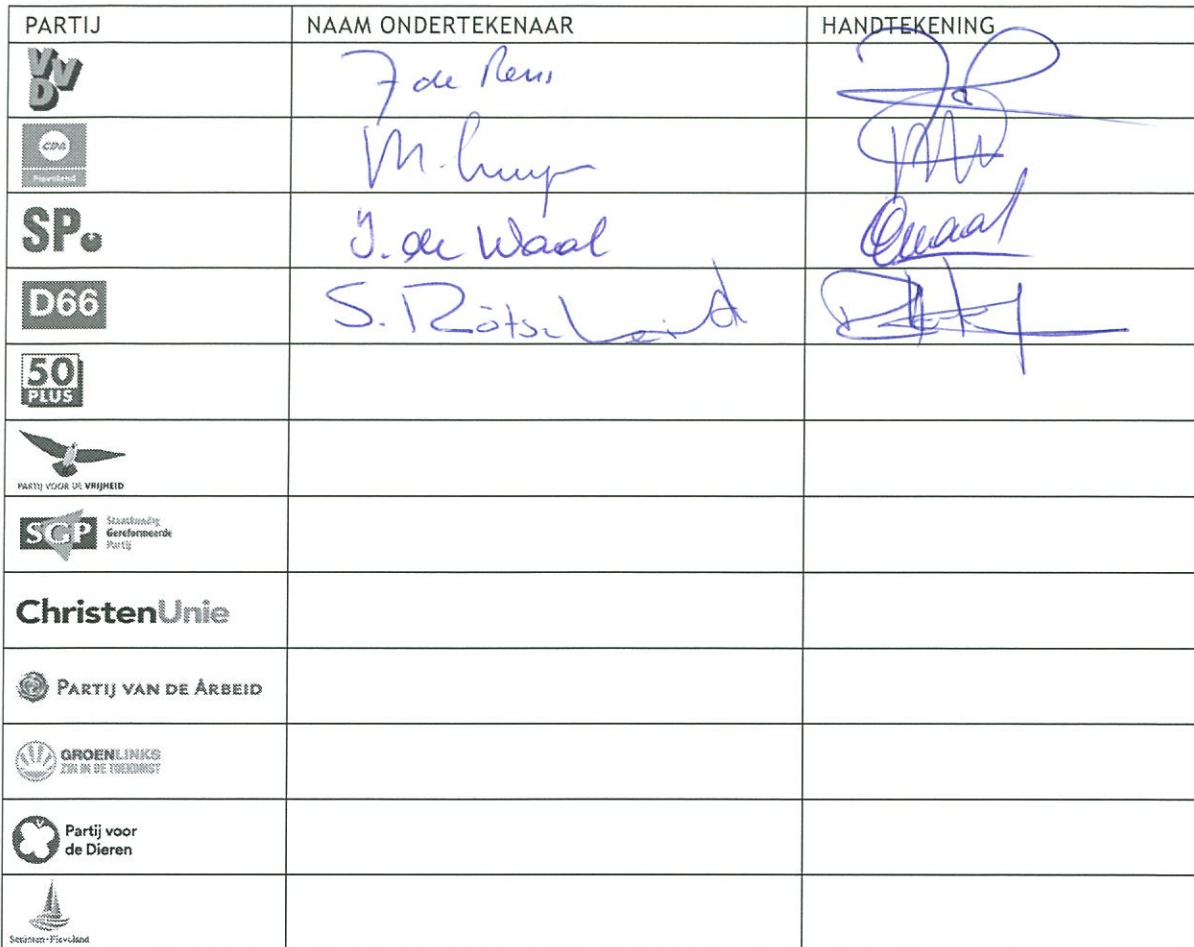 PARTIJ NAAM ONDERTEKENAAR HANDTEKENING
VVD
J de Reus
CDA
Flevoland
M. Luyer
SP.
J. de Waal
D66
S. Rötscheid
50
PLUS
PARTIJ VOOR DE VRIJHEID
SGP Staatkundig
Gereformeerde
Partij
ChristenUnie
PARTIJ VAN DE ARBEID
GROENLINKS
ZIN IN DE TOEKOMST
Partij voor
de Dieren
Senioren+Flevoland